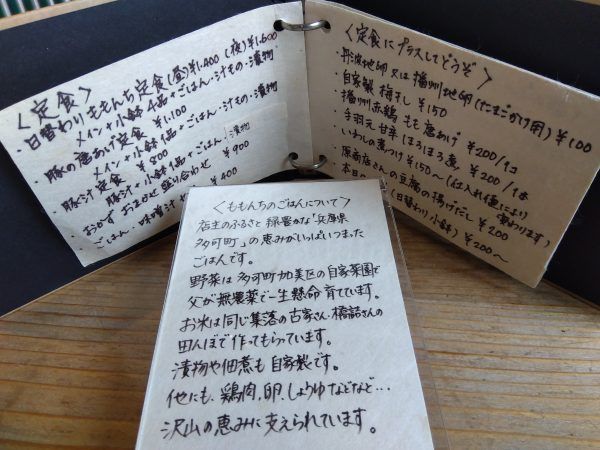 〈定食〉
・日替わりももんち定食(昼)¥1,400 (夜)¥1,600
メイン+小鉢4品+ごはん・汁もの・漬物
・豚の唐あげ定食 ¥1,100
メイン+小鉢1品+ごはん・汁もの・漬物
・豚汁定食 ¥800
豚汁+小鉢1品+ごはん・漬物
・おかず おまかせ盛り合わせ ¥900
・ごはん・味噌汁 ¥400
〈定食にプラスしてどうぞ〉
・丹波地卵 又は 播州地卵(たまごかけ用) ¥100
・自家製 梅干し ¥150
・播州赤鶏 もも唐あげ ¥200/1コ
・手羽元 甘辛ほろほろ煮 ¥200/1本
・いわしの煮つけ ¥150〜(仕入れ値により変わります)
・原商店さんの豆腐の揚げだし ¥200
・本日の(日替わり小鉢) ¥200〜
〈ももんちのごはんについて〉
店主のふるさと 緑豊かな「兵庫県
多可町」の恵みがいっぱいつまった
ごはんです。
野菜は多可町加美区の自家菜園で
父が無農薬で一生懸命育てています。
お米は同じ集落の古家さん、橋詰さんの
田んぼで作ってもらっています。
漬物や佃煮も自家製です。
他にも、鶏肉、卵、しょうゆなどなど…
沢山の恵みに支えられています。